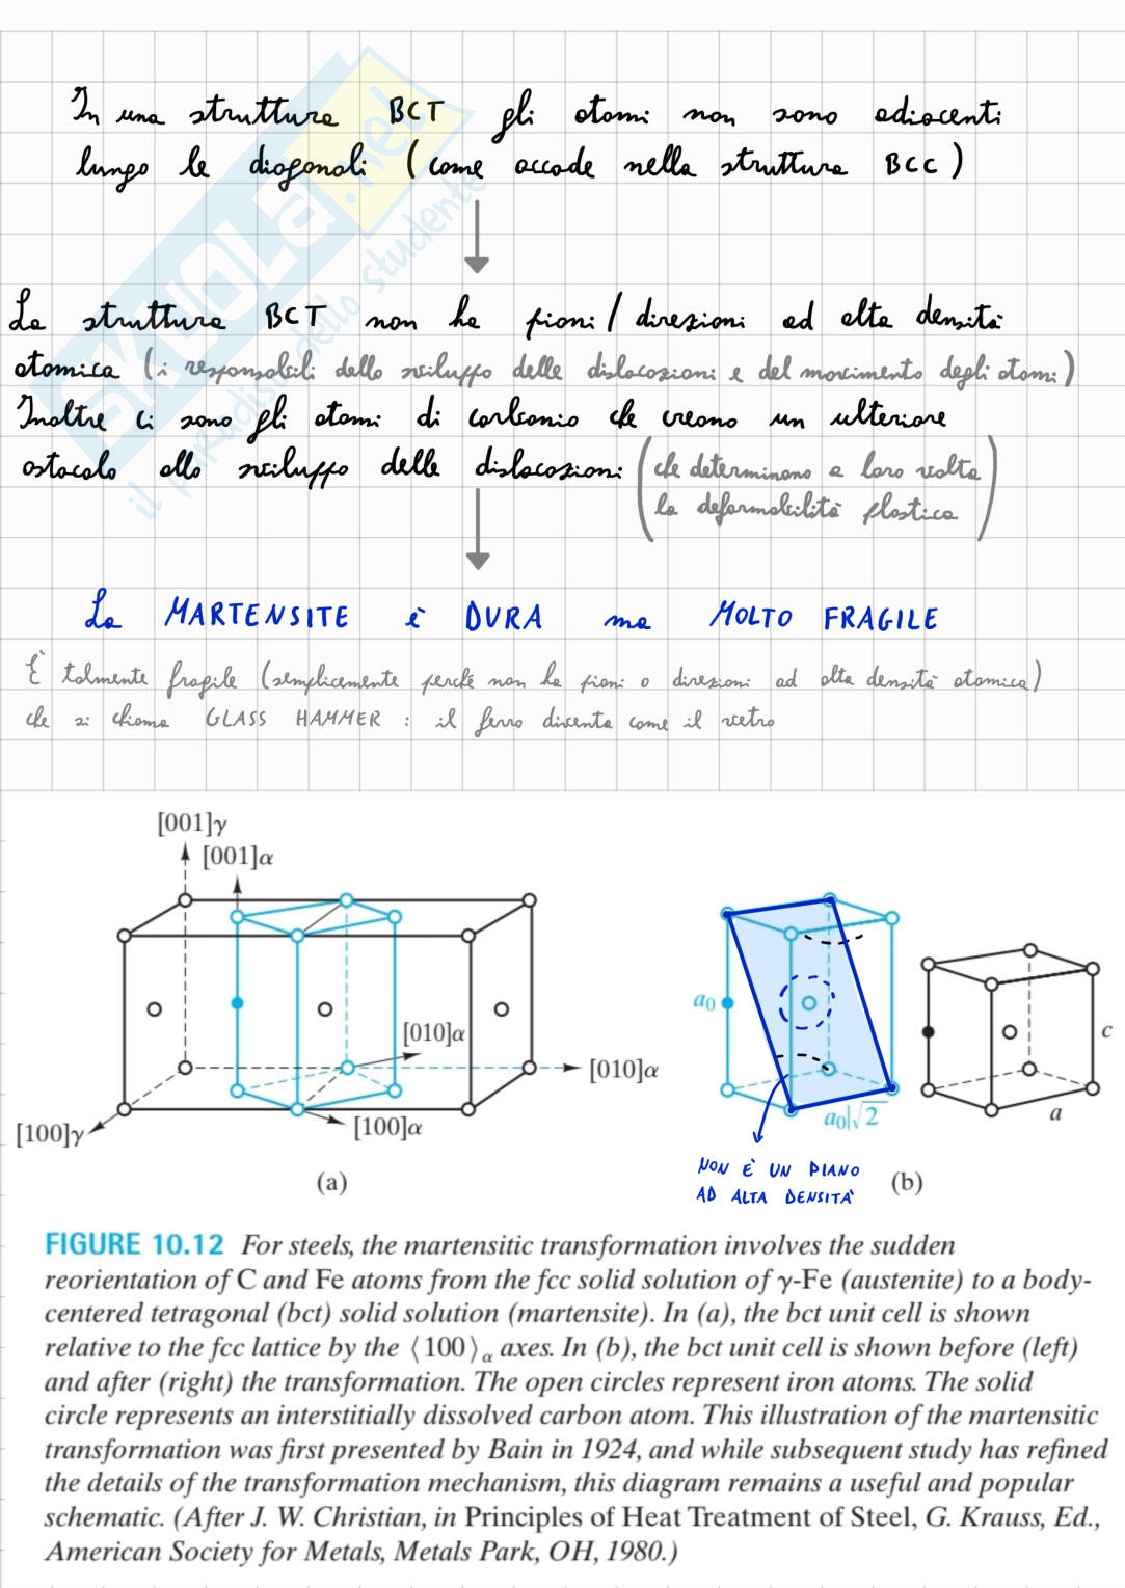 In una struttura BCT gli atomi non sono adiacenti
lungo le diagonali (come accade nella struttura BCC)
La struttura BCT non ha piani/direzioni ad alta densità
atomica (i responsabili dello sviluppo delle dislocazioni e del movimento degli atomi)
Inoltre ci sono gli atomi di carbonio che creano un ulteriore
ostacolo allo sviluppo delle dislocazioni (che determinano a loro volta
la deformabilità plastica)
La MARTENSITE è DURA ma MOLTO FRAGILE
È talmente fragile (semplicemente perché non ha piani o direzioni ad alta densità atomica)
che si chiama GLASS HAMMER : il ferro diventa come il vetro
SKUOLA.net
il paradiso dello studente
[001]γ
[001]α
[010]α
[010]α
[100]γ
[100]α
(a)
a₀
a₀|√2
c
a
NON È UN PIANO
AD ALTA DENSITÀ
(b)
FIGURE 10.12 For steels, the martensitic transformation involves the sudden
reorientation of C and Fe atoms from the fcc solid solution of γ-Fe (austenite) to a body-
centered tetragonal (bct) solid solution (martensite). In (a), the bct unit cell is shown
relative to the fcc lattice by the ⟨100⟩α axes. In (b), the bct unit cell is shown before (left)
and after (right) the transformation. The open circles represent iron atoms. The solid
circle represents an interstitially dissolved carbon atom. This illustration of the martensitic
transformation was first presented by Bain in 1924, and while subsequent study has refined
the details of the transformation mechanism, this diagram remains a useful and popular
schematic. (After J. W. Christian, in Principles of Heat Treatment of Steel, G. Krauss, Ed.,
American Society for Metals, Metals Park, OH, 1980.)